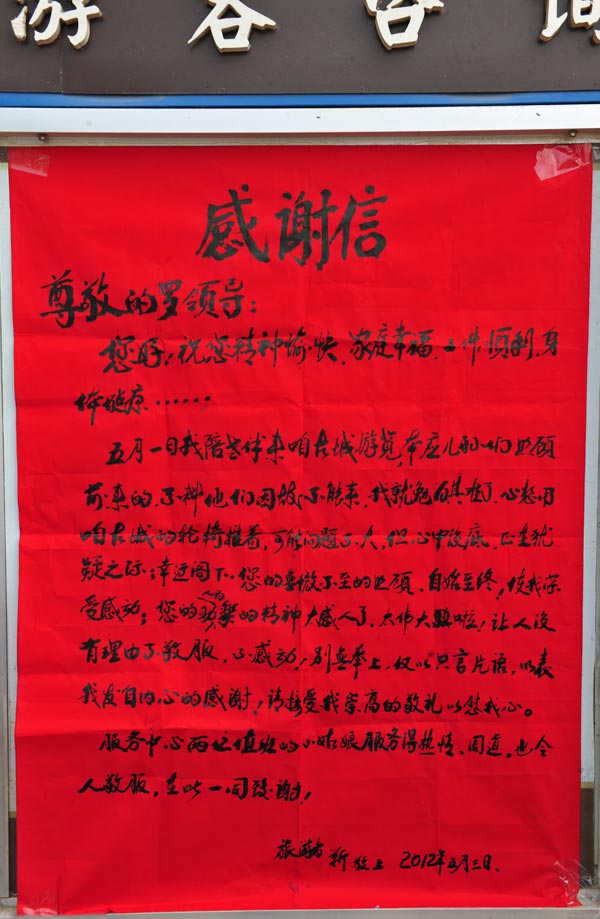 游客咨询
感谢信
尊敬的罗领导:
您好!祝您精神愉快、家庭幸福、工作顺利、身
体健康……
五月一日我陪老伴来咱古城游览,本应儿女们照顾
前来的,不料他们因故不能来,我就勉为其难了。心想用
咱古城的轮椅推着,可能问题不大,但心中没底,正在犹
疑之际;幸遇阁下,您的无微不至的照顾,自始至终,使我深
受感动;您的的精神太感人了,太伟大啦!让人没
有理由不敬服,不感动!别无奉上,仅以只言片语,以表
我发自内心的感谢!请接受我崇高的敬礼以您我心。
服务中心两位值班的小姑娘服务得热情、周道,也令
人敬服,在此一同致谢!
旅游者 靳敬上 2012年5月三日.